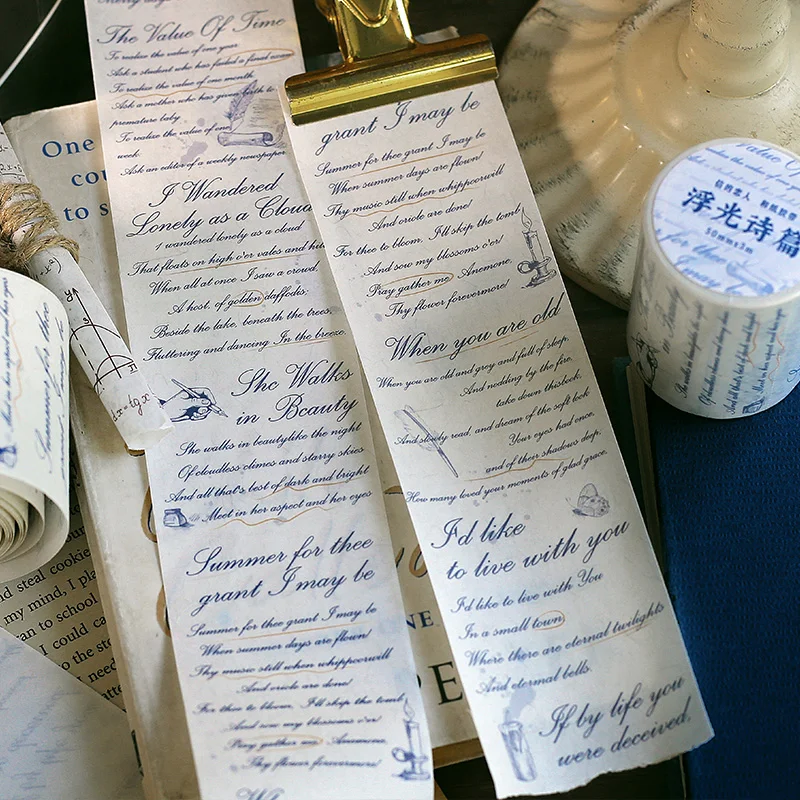 The Value Of Time
To realize the value of one year
Ask a student who has failed a final exam
To realize the value of one month
Ask a mother who has given birth to
premature baby.
To realize the value of one
week.
Ask an editor of a weekly newspaper
I Wandered
Lonely as a Cloud
I wandered lonely as a cloud
That floats on high o'er vales and hills
When all at once I saw a crowd,
A host, of golden daffodls;
Beside the lake, beneath the trees,
Fluttering and dancing In the breeze.
She Walks
in Beauty
She walks in beautylike the night
Of cloudless climes and starry skies
And all that's best of dark and bright
Meet in her aspect and her eyes
Summer for thee
grant I may be
Summer for thee grant I may be
When summer days are flown!
Thy music still when whippoorwill
And oriole are done!
For thee to bloom, I'll skip the tomb
And sow my blossoms o'er!
Pray gather me Anemone.
Thy flower forevermore!
grant I may be
Summer for thee grant I may be
When summer days are flown!
Thy music still when whippoorwill
And oriole are done!
For thee to bloom, I'll skip the tomb
And sow my blossoms o'er!
Pray gather me Anemone.
Thy flower forevermore!
When you are old
When you are old and grey and full of sleep,
And nodding by the fire,
take down thisbook,
And slowly read, and dream of the soft look
Your eyes had once,
and of their shadows deep.
How many loved your moments of glad grace,
I'd like
to live with you
I'd like to live with You
In a small town,
Where there are eternal twilights
And eternal bells.
If by life you
were deceived,
浮光诗篇
50mm×3m
One
to s
dx=tgx
nd steal cookie
my mind, I pla
an to school
I could ca
to the sto
I need
Meet in her aspect and her eyes
Summer for thee